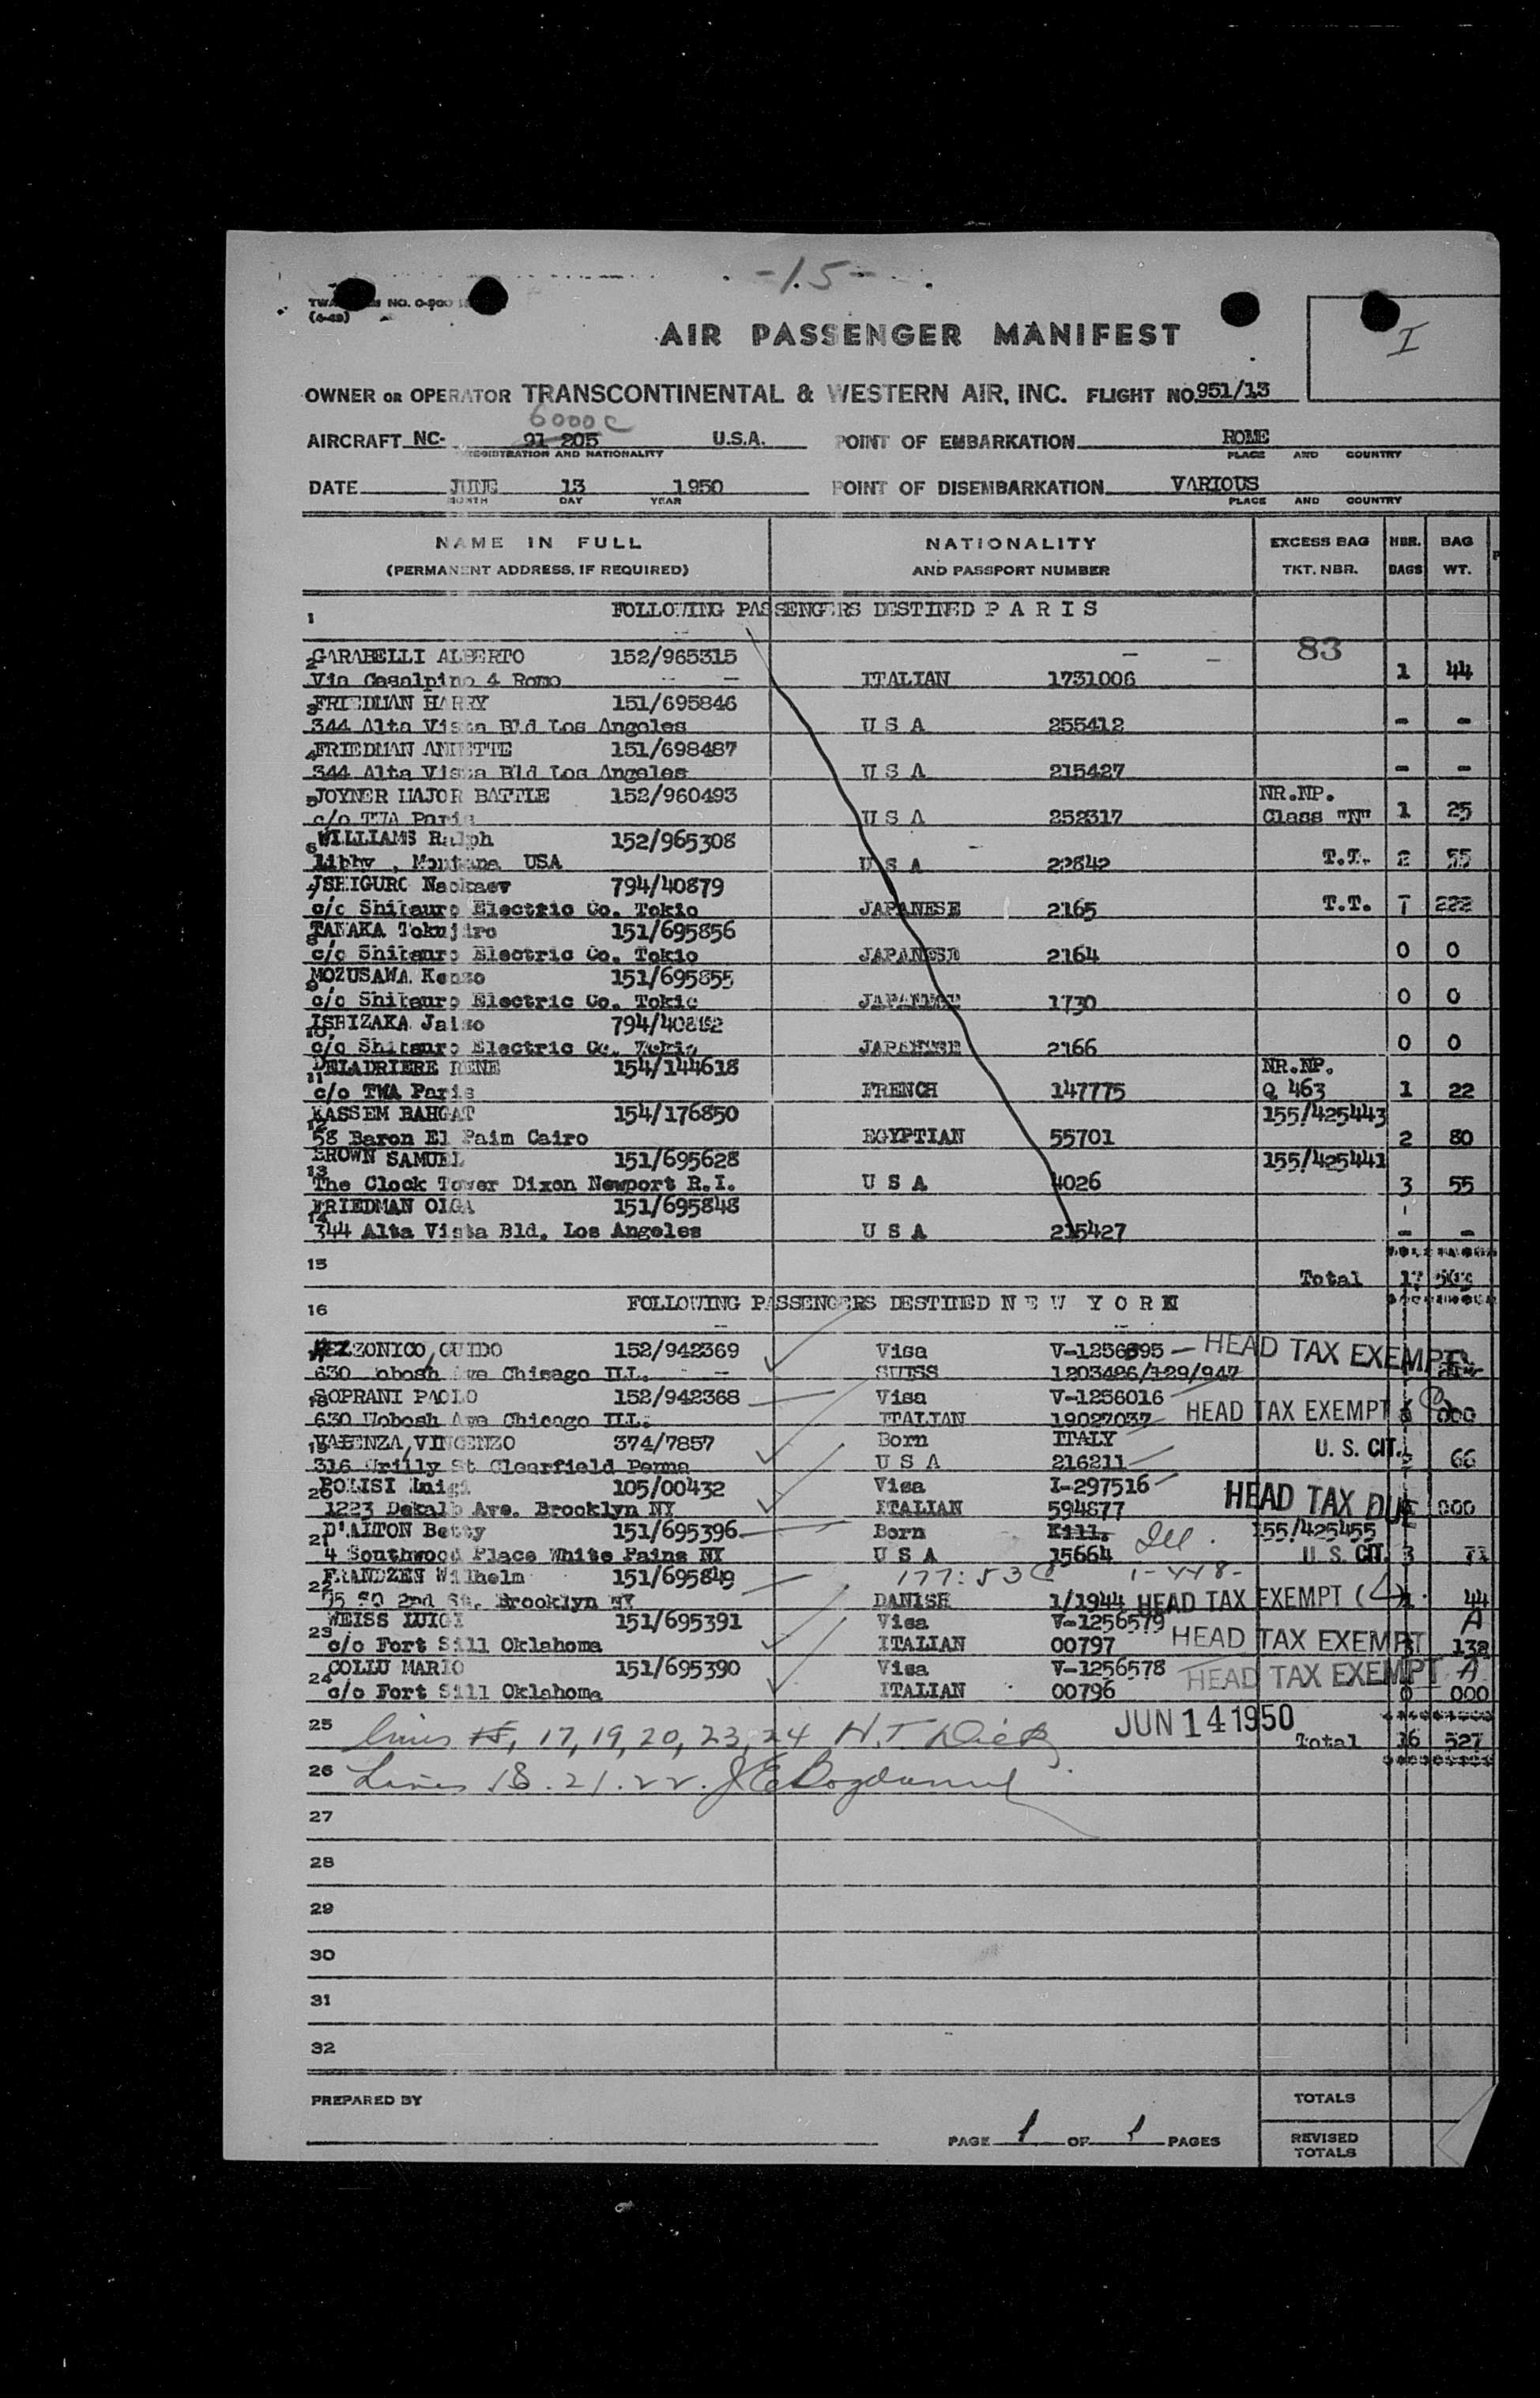 -15-
NO. O-900
(4-49)
AIR PASSENGER MANIFEST
I
OWNER OR OPERATOR TRANSCONTINENTAL & WESTERN AIR, INC. FLIGHT NO. 951/13
6000C
AIRCRAFT NC- 91 205 U.S.A. POINT OF EMBARKATION ROME
REGISTRATION AND NATIONALITY PLACE AND COUNTRY
DATE JUNE 13 1950 POINT OF DISEMBARKATION VARIOUS
MONTH DAY YEAR PLACE AND COUNTRY
NAME IN FULL NATIONALITY EXCESS BAG NBR. BAG
(PERMANENT ADDRESS, IF REQUIRED) AND PASSPORT NUMBER TKT. NBR. BAGS WT.
1 FOLLOWING PASSENGERS DESTINED P A R I S
83
2 GARABELLI ALBERTO 152/965315
Via Cesalpino 4 Rome ITALIAN 1731006 1 44
3 FRIEDMAN HARRY 151/695846
344 Alta Vista Bld Los Angeles U S A 255412 - -
4 FRIEDMAN ANNETTE 151/698487
344 Alta Vista Bld Los Angeles U S A 215427 - -
5 JOYNER MAJOR BATTLE 152/960493 NR.NP.
c/o TWA Paris U S A 252317 Class "N" 1 25
6 WILLIAMS Ralph 152/965308
Libby , Montana USA U S A 22842 T.T. 2 55
7 794/40879
c/o Shitauro Electric Co. Tokio JAPANESE 2165 T.T. 7 222
8 TANAKA Tokujiro 151/695856
c/o Shitauro Electric Co. Tokio JAPANESE 2164 0 0
9 MOZUSAWA Kenzo 151/695855
c/o Shitauro Electric Co. Tokio JAPANESE 1730 0 0
10 ISHIZAKA 794/40882
c/o Shitauro Electric Co. Tokio JAPANESE 2166 0 0
11 DELADRIERE RENE 154/144618 NR.NP.
c/o TWA Paris FRENCH 147775 Q 463 1 22
12 KASSEM BAHGAT 154/176850 155/425443
58 Baron El Paim Cairo EGYPTIAN 55701 2 80
13 BROWN SAMUEL 151/695628 155/425441
The Clock Tower Dixon Newport R.I. U S A 4026 3 55
14 FRIEDMAN OLGA 151/695848
344 Alta Vista Bld. Los Angeles U S A 215427 - -
15 Total 17
16 FOLLOWING PASSENGERS DESTINED N E W Y O R K
REZZONICO, GUIDO 152/942369 Visa V-1256595 — HEAD TAX EXEMPT
630 Ave Chicago ILL. SUISS 1203426/129/947
18 SOPRANI PAOLO 152/942368 Visa V-1256016
630 Wobosh Ave Chicago ILL. ITALIAN 19027037 HEAD TAX EXEMPT 000
19 VALENZA, VINCENZO 374/7857 Born ITALY U. S. CIT.
316 St Clearfield Penna U S A 216211 66
20 POLISI Luigi 105/00432 Visa I-297516
1223 Dekalb Ave. Brooklyn NY ITALIAN 594877 HEAD TAX DUE 000
21 D'ALTON Betty 151/695396 Born Kill. Ill. 155/425455
4 Southwood Place White Pains NY U S A 15664 U. S. CIT. 3 71
22 FRANDZEN Wilhelm 151/695849 177:53 1-448-
75 SO 2nd St. Brooklyn NY DANISH 1/1944 HEAD TAX EXEMPT (L) 1 44
23 WEISS LUIGI 151/695391 Visa V-1256579 A
c/o Fort Sill Oklahoma ITALIAN 00797 HEAD TAX EXEMPT 132
24 COLLU MARIO 151/695390 Visa V-1256578 HEAD TAX EXEMPT A
c/o Fort Sill Oklahoma ITALIAN 00796 0 000
JUN 14 1950
25 lines 17, 19, 20, 23, 24 Total 16 527
26 Lines 18. 21. 22.
27
28
29
30
31
32
PREPARED BY TOTALS
PAGE 1 OF 1 PAGES REVISED
TOTALS